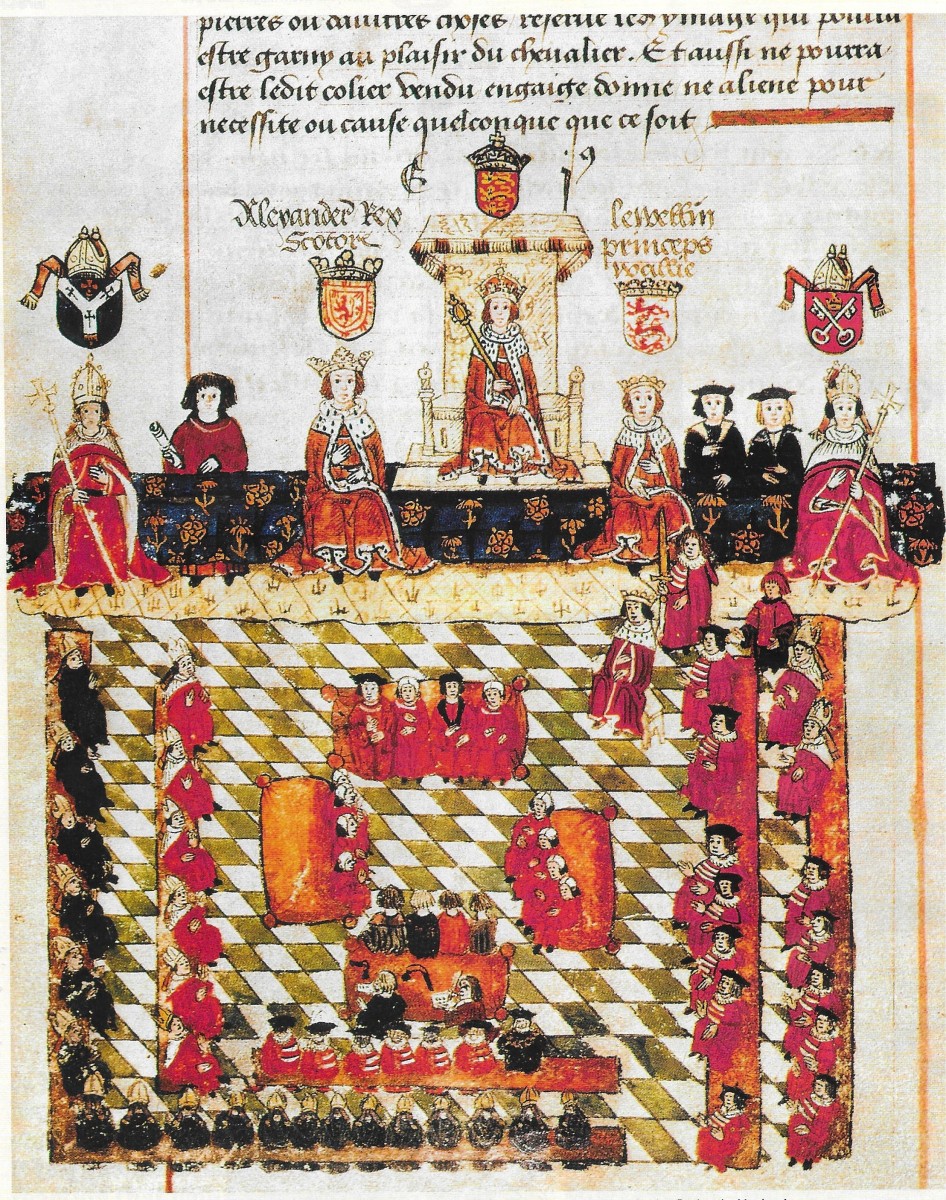 pierres ou daultres choses reserve led ymaige qui pourra
estre garny au plaisir du chevalier. Et aussi ne pourra
estre ledit colier vendu engaige donne ne aliene pour
necessite ou cause quelconque que ce soit
E
Alexander Rex
Scotor
Lewellin
princeps
wallie